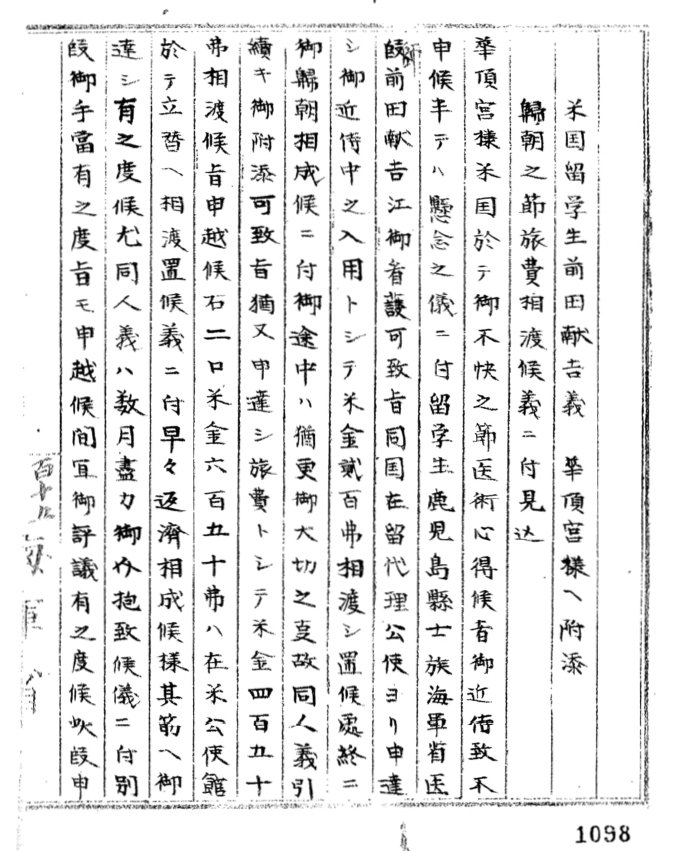 米国留学生前田献吉義　華頂宮様ヘ附添
帰朝之節旅費相渡候義ニ付見込
華頂宮様米国於テ御不快之節医術心得候者御近侍致不
申候半テハ懸念之儀ニ付留学生鹿児島縣士族海軍省医
師
段前田献吉江御看護可致旨同国在留代理公使ヨリ申達
シ御近侍中之入用トシテ米金貳百弗相渡シ置候處終ニ
御帰朝相成候ニ付御途中ハ猶更御大切之事故同人義引
續キ御附添可致旨猶又申達シ旅費トシテ米金四百五十
弗相渡候旨申越候右二口米金六百五十弗ハ在米公使館
於テ立替ヘ相渡置候義ニ付早々返済相成候様其筋ヘ御
達シ有之度候尤同人義ハ数月盡力御介抱致候儀ニ付別
段御手當有之度旨モ申越候間宜御評議有之度候此段申
海軍省
1098